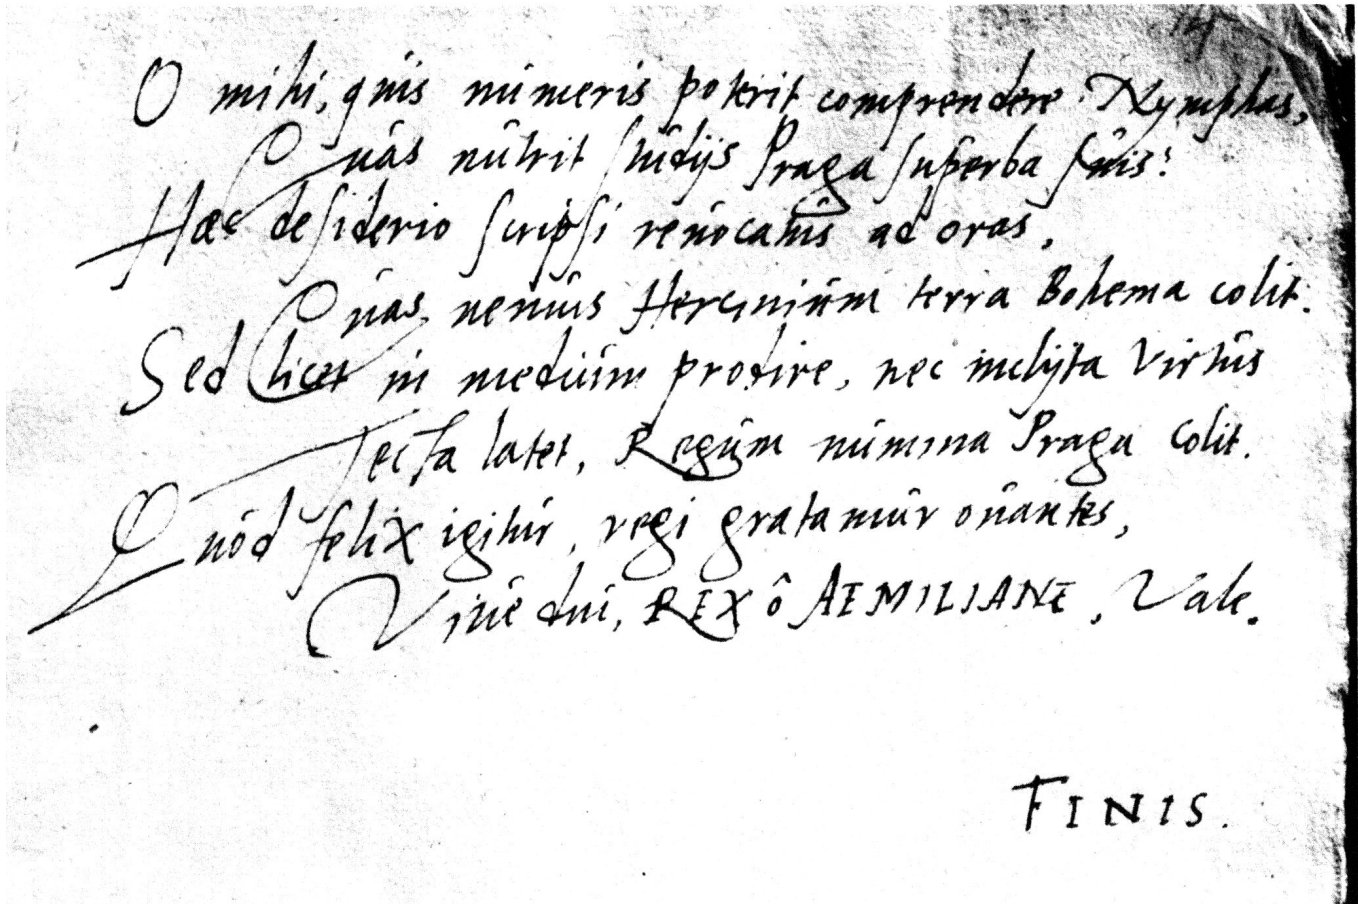 14
O mihi, quis numeris poterit comprendere Nymphas,
Quas nutrit studijs Praga superba suis?
Haec desiderio scripsi reuocatus ad oras,
Quas nemus Hercinium terra Bohema colit.
Sed licet in medium prodire, nec inclyta Virtus
Tecta latet, Regum numina Praga colit.
Quod felix igitur, regi gratamur ouantes,
Viue diu, REX ô AEMILIANE, Vale.
FINIS.